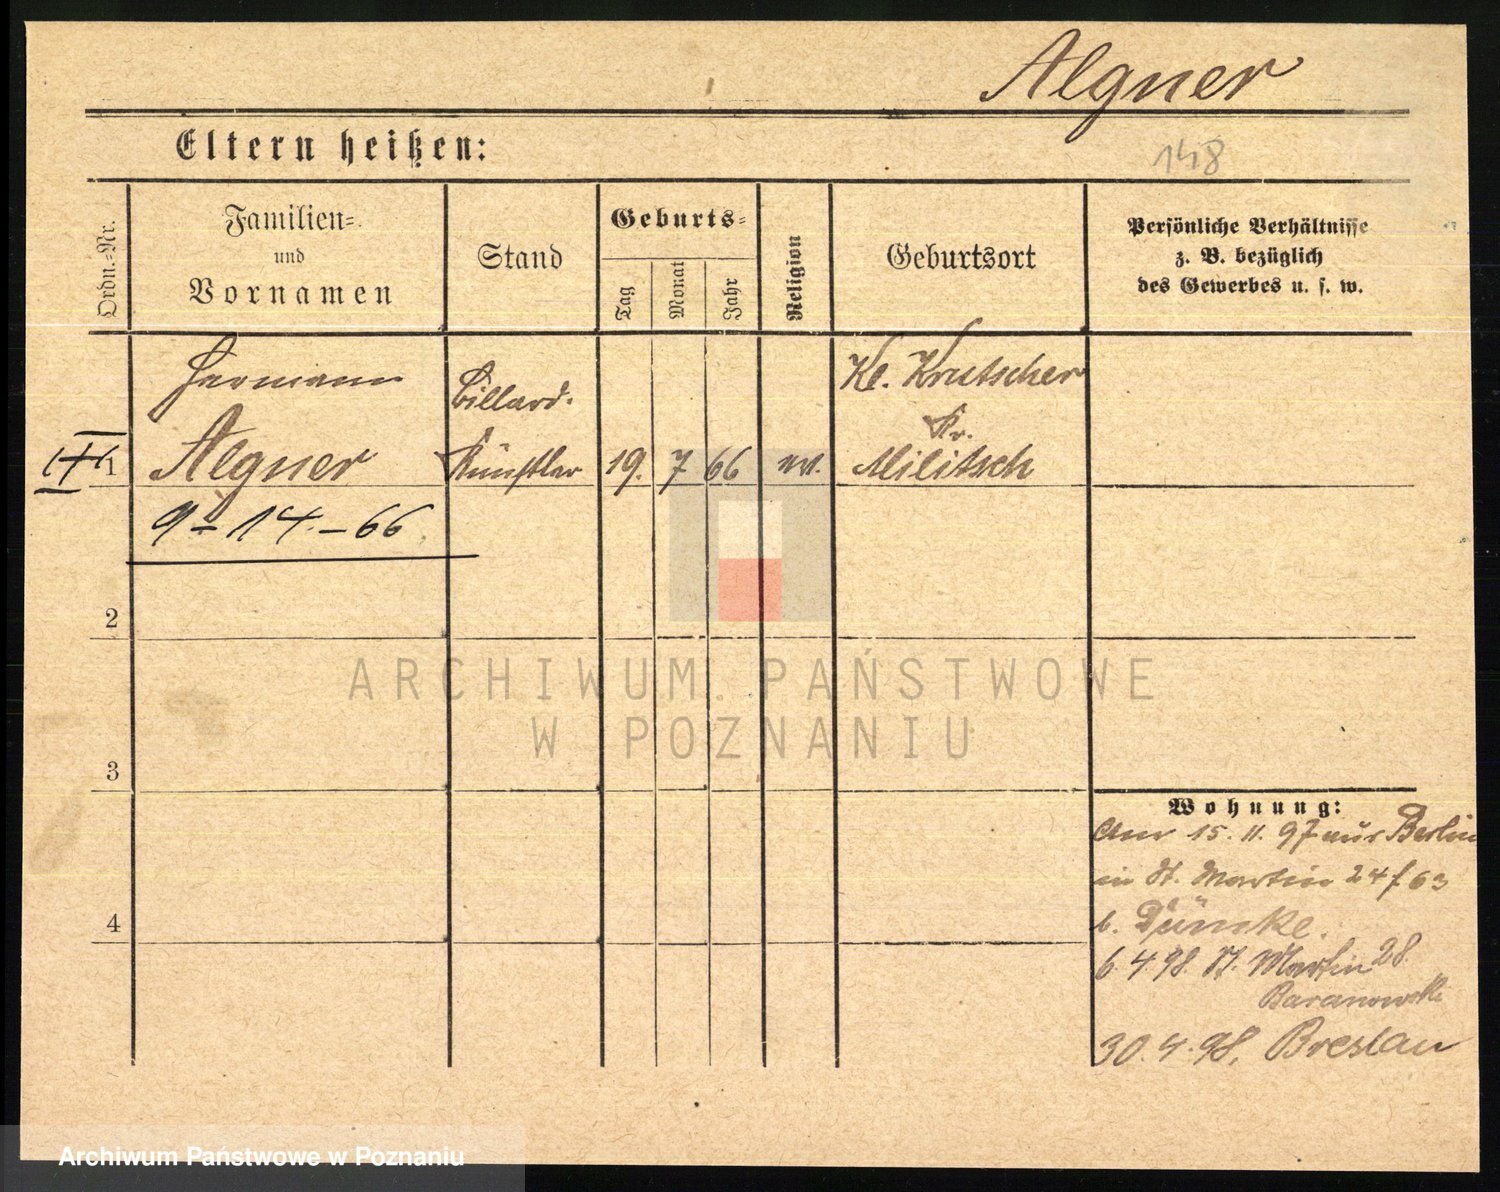 Algner
148
Eltern heißen:
Ordn.-Nr.
Familien-
und
Vornamen
Stand
Geburts-
Tag
Monat
Jahr
Religion
Geburtsort
Persönliche Verhältnisse
z. B. bezüglich
des Gewerbes u. s. w.
1
Hermann
Algner
9-14.-66
Billard-
Künstler
19.
7
66
ev.
Kl. Krutschen
Kr.
Militsch
2
3
4
Wohnung:
Am 15.11.97 aus Berlin
in St. Martin 24 f 63
b. Düncke.
6.4.98. St. Martin 28.
Baranowski
30.4.98. Breslau
ARCHIWUM PAŃSTWOWE
W POZNANIU
Archiwum Państwowe w Poznaniu